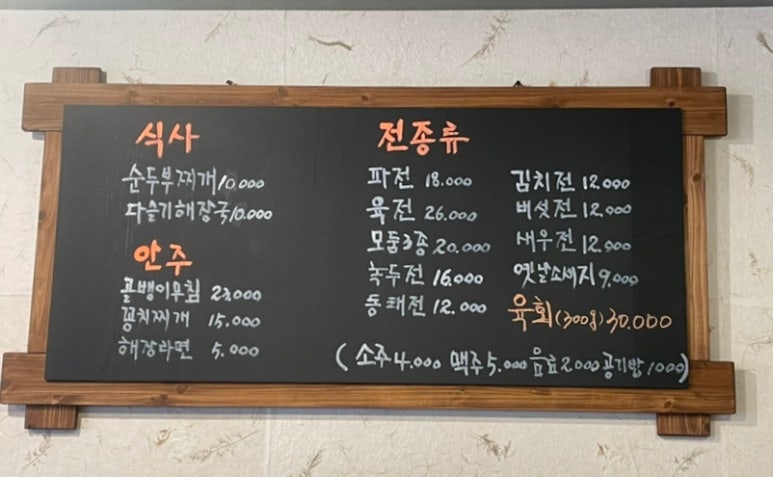 식사
순두부찌개 10.000
다슬기해장국 10.000
안주
골뱅이무침 23.000
꽁치찌개 15.000
해장라면 5.000
전종류
파전 18.000
육전 26.000
모둠3종 20.000
녹두전 16.000
동태전 12.000
김치전 12.000
버섯전 12.000
새우전 12.000
옛날소세지 9.000
육회(300g) 30.000
(소주 4.000 맥주 5.000 음료 2000 공기밥 1000)